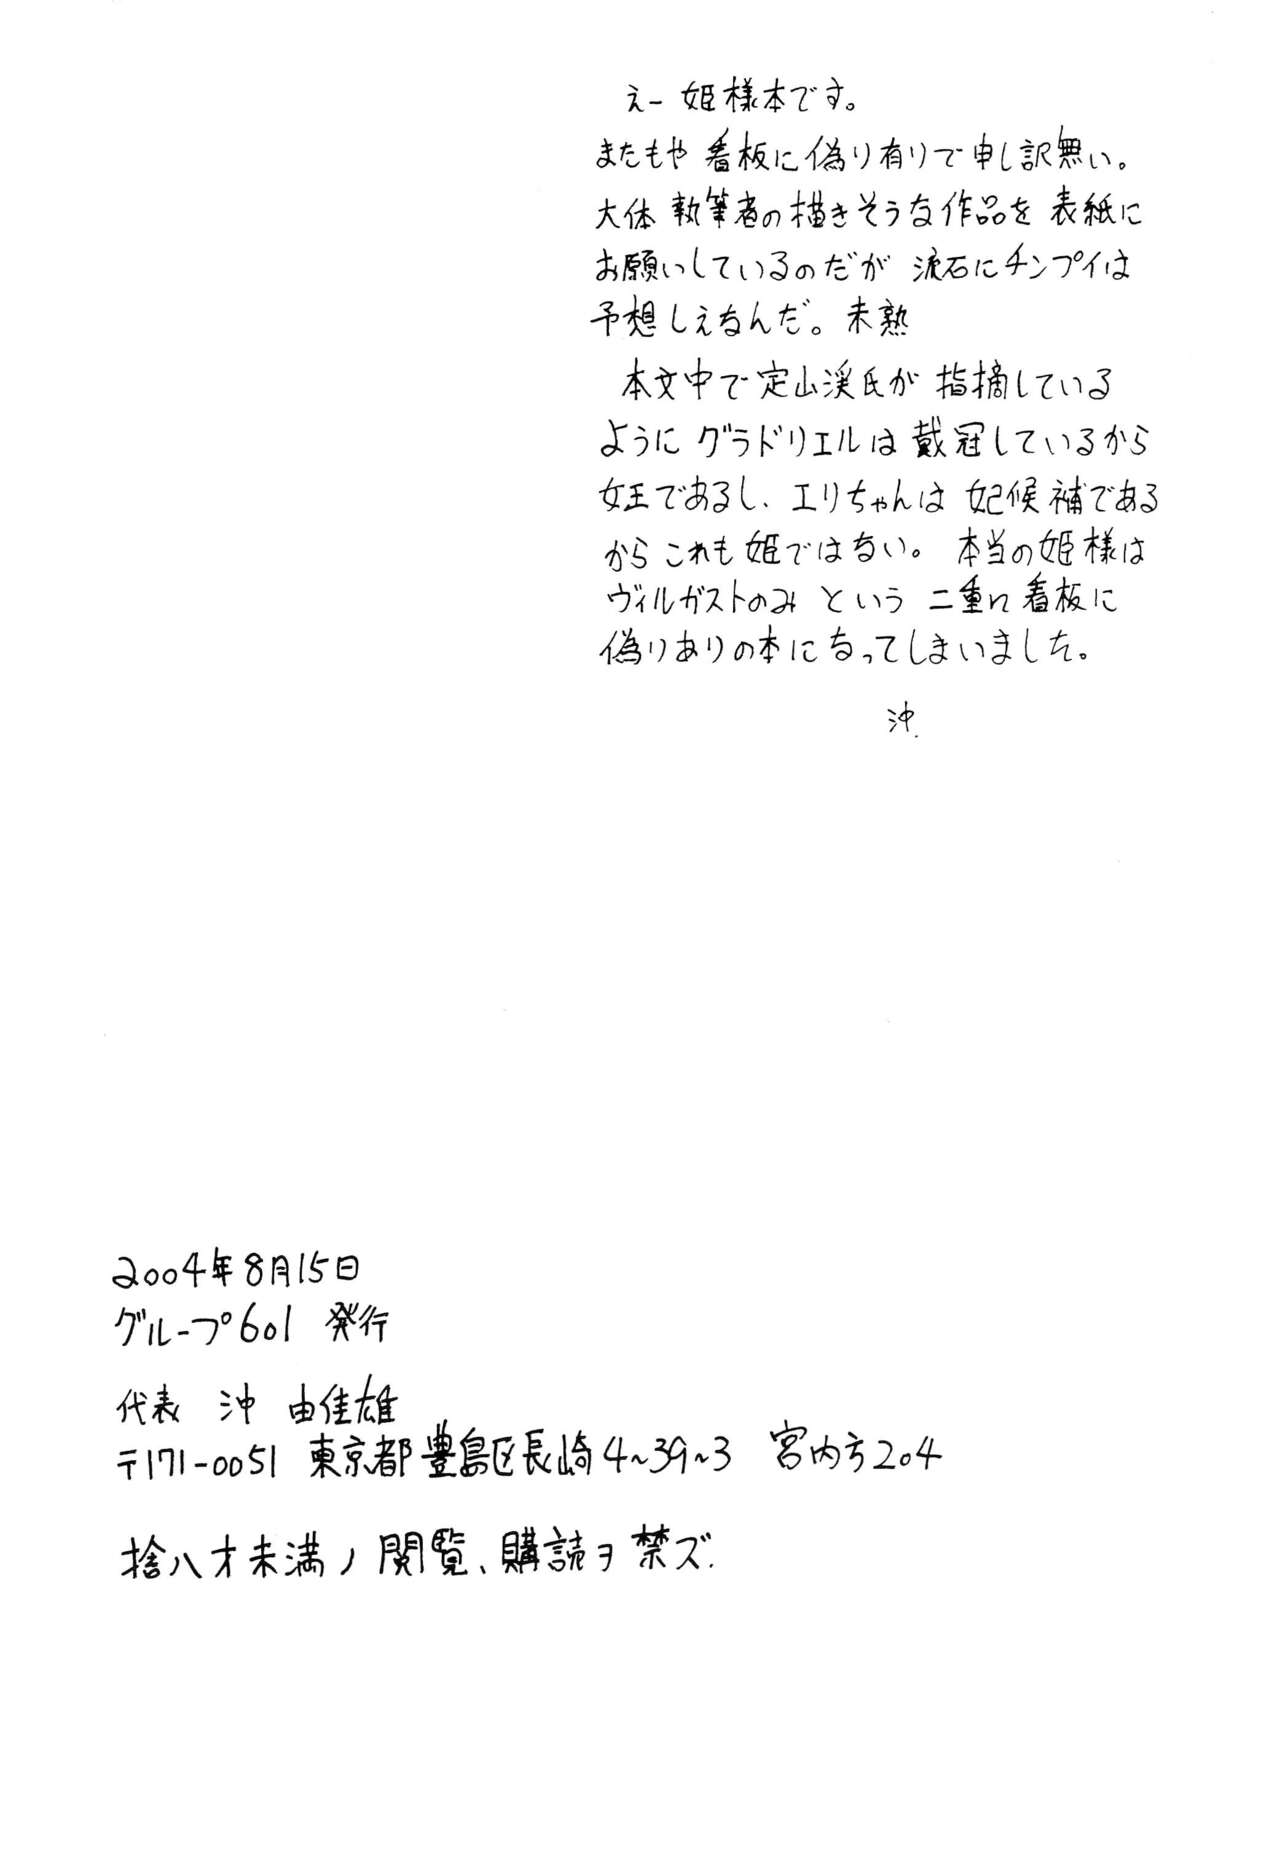 えー 姫様本です。
またもや 看板に偽り有りで申し訳無い。
大体 執筆者の描きそうな作品を 表紙に
お願いしているのだが 流石にチンプイは
予想しえなんだ。未熟
本文中で定山渓氏が 指摘している
ように グラドリエルは 戴冠しているから
女王であるし、エリちゃんは 妃候補である
から これも 姫ではない。 本当の姫様は
ヴィルガストのみ という 二重に看板に
偽りありの本になってしまいました。
沖.
2004年8月15日
グループ601 発行
代表 沖 由佳雄
〒171-0051 東京都豊島区長崎4~39~3 宮内方204
捨八才未満ノ閲覧、購読ヲ禁ズ.